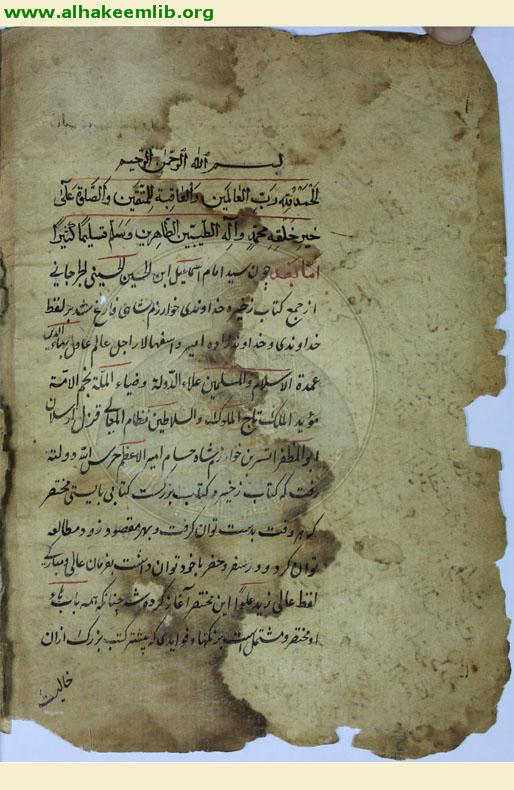 www.alhakeemlib.org
بسم الله الرحمن الرحيم
الحمد لله رب العالمين والعاقبة للمتقين والصلوة على
خير خلقه محمد وآله الطيبين الطاهرين وسلم تسليما كثيرا
اما بعد چون سيد امام اسمعيل ابن الحسين الحسيني الجرجاني
از جمع كتاب ذخيره خداوندى خوارزم شاهى فارغ شد بر لفظ
خداوندى و خداوند زاده امير و اسفهسالار اجل عالم عادل بهاء الدين
عمدة الاسلام والمسلمين علاء الدولة وضياء الملة نجم الامة
مؤيد الملك تاج الملوك والسلاطين نظام المعالى قزل ارسلان
ابو المظفر اتسز بن خوارزمشاه حسام امير الاعظم حرس الله دولته
رفت كه كتاب ذخيره كتاب بزرگست كتابى بايستى مختصر
كه هر وقت بدست توان گرفت و بهر مقصود زود مطالعه
توان كرد و در سفر و حضر با خود توان داشت بفرمان عالى و مبارك
لفظ عالى زيد علوا اين مختصر آغاز كرده شد چنانكه همه بابهاء
او مختصر و مشتمل است بر نكتها و فوايدى كه بيشتر كتب بزرگ از ان
خاليست